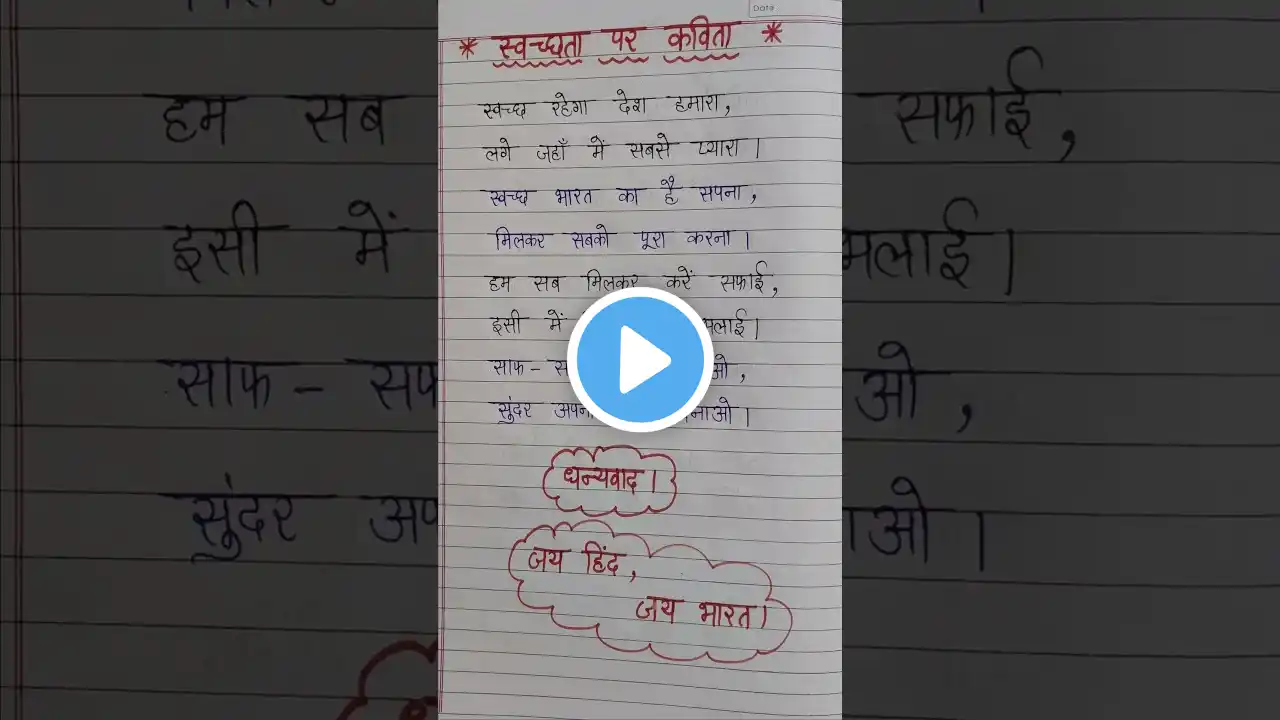 Date
* स्वच्छता पर कविता *
स्वच्छ रहेगा देश हमारा,
लगे जहाँ में सबसे प्यारा।
स्वच्छ भारत का है सपना,
मिलकर सबको पूरा करना।
हम सब मिलकर करें सफाई,
इसी में
साफ -
सुंदर
धन्यवाद।
जय हिंद,
जय भारत।
हम सब
सफाई,
इसी में
साफ -
सुंदर